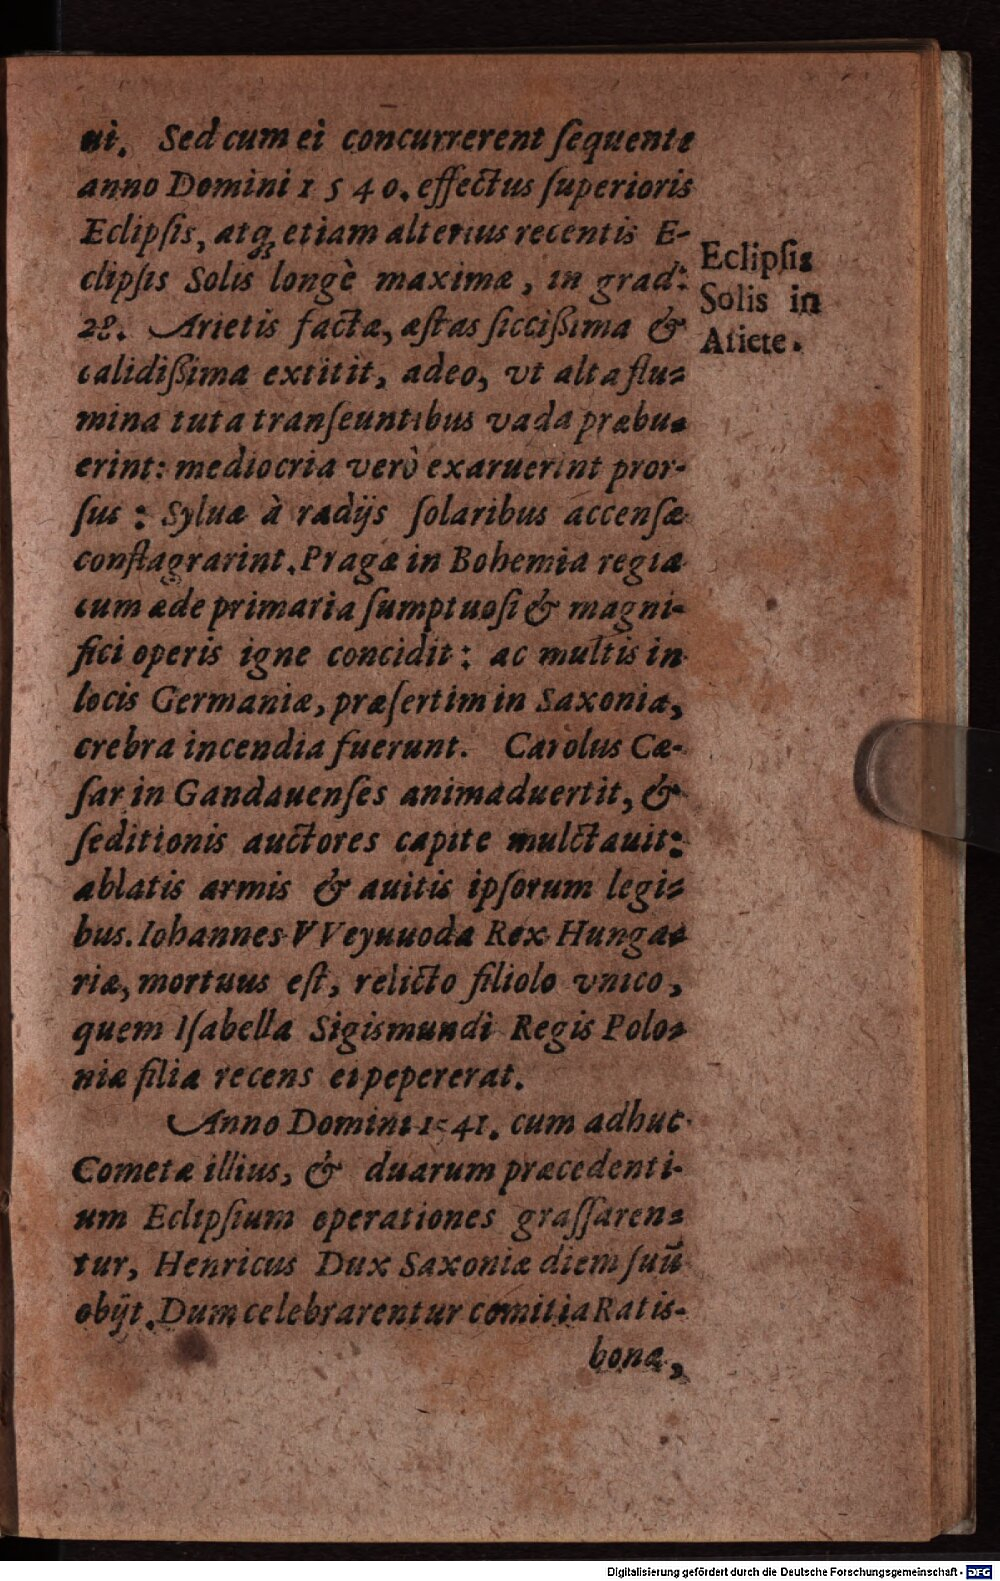 ui. Sed cum ei concurrerent ſequente
anno Domini 1 5 4 0. effectus ſuperioris
Eclipſis, atq́; etiam alterius recentis E-
clipſis Solis longè maximæ, in grad:
28. Arietis factæ, æſtas ſicciſsima &
calidiſsima extitit, adeo, vt alta flu-
mina tuta tranſeuntibus vada præbu-
erint: mediocria verò exaruerint pror-
ſus: Syluæ à radijs ſolaribus accenſæ
conflagrarint. Pragæ in Bohemia regia
cum æde primaria ſumptuoſi & magni-
fici operis igne concidit: ac multis in
locis Germaniæ, præſertim in Saxonia,
crebra incendia fuerunt. Carolus Cæ-
ſar in Gandauenſes animaduertit, &
ſeditionis auctores capite mulctauit:
ablatis armis & auitis ipſorum legi-
bus. Iohannes VVeyuuoda Rex Hunga-
riæ, mortuus eſt, relicto filiolo vnico,
quem Iſabella Sigismundi Regis Polo-
niæ filia recens ei pepererat.
Anno Domini 1541. cum adhuc
Cometæ illius, & duarum præcedenti-
um Eclipſium operationes graſſaren-
tur, Henricus Dux Saxoniæ diem ſuū
obijt. Dum celebrarentur comitia Ratis-
bonæ,
Eclipſis
Solis in
Ariete.
Digitalisierung gefördert durch die Deutsche Forschungsgemeinschaft - DFG